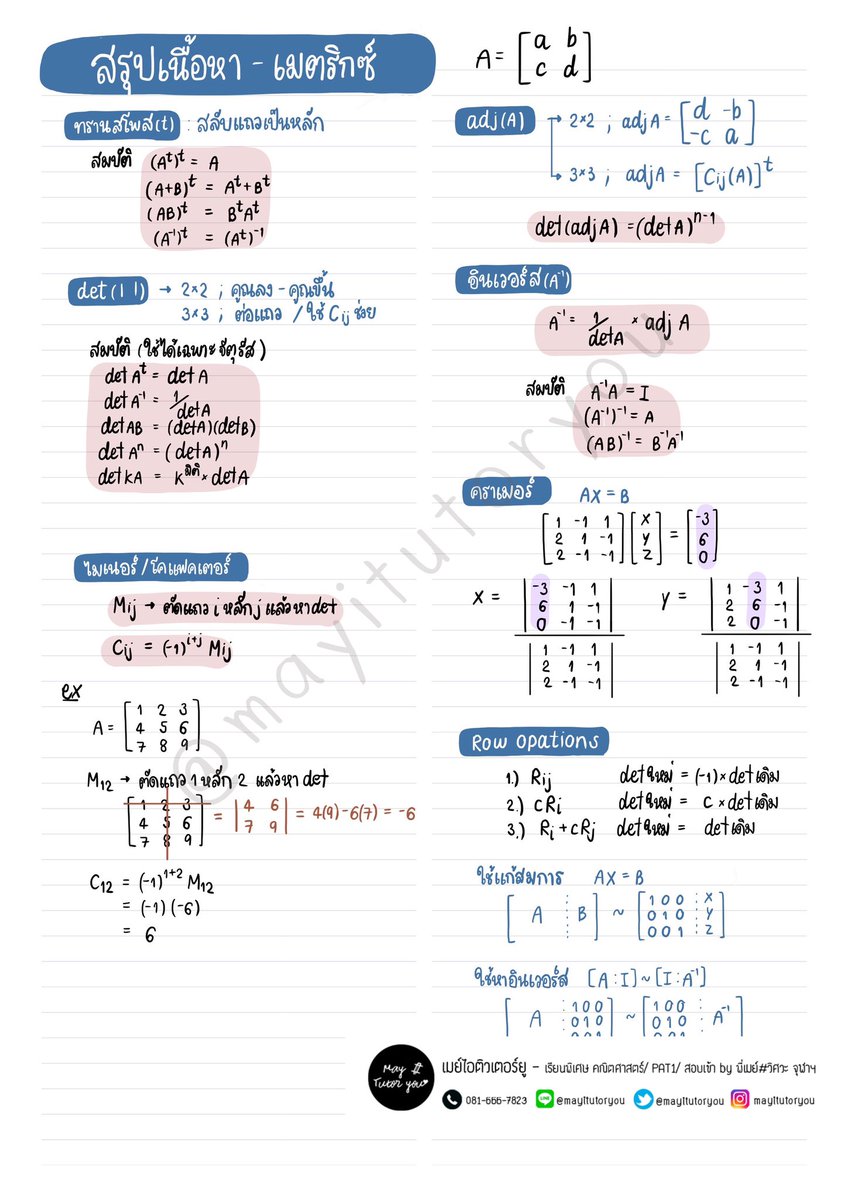 สรุปเนื้อหา - เมตริกซ์
ทรานสโพส(t) : สลับแถวเป็นหลัก
สมบัติ (Aᵗ)ᵗ = A
(A+B)ᵗ = Aᵗ+Bᵗ
(AB)ᵗ = BᵗAᵗ
(A⁻¹)ᵗ = (Aᵗ)⁻¹
det(| |) → 2×2 ; คูณลง - คูณขึ้น
3×3 ; ต่อแถว / ใช้ Cij ช่วย
สมบัติ (ใช้ได้เฉพาะจัตุรัส)
det Aᵗ = det A
det A⁻¹ = 1/det A
det AB = (det A)(det B)
det Aⁿ = (det A)ⁿ
det kA = K^มิติ × det A
ไมเนอร์/โคแฟคเตอร์
Mij → ตัดแถว i หลัก j แล้วหา det
Cij = (-1)^i+j Mij
ex
A = [1 2 3
4 5 6
7 8 9]
M12 → ตัดแถว 1 หลัก 2 แล้วหา det
[1 2 3
4 5 6
7 8 9] = |4 6
7 9| = 4(9)-6(7) = -6
C12 = (-1)^1+2 M12
= (-1)(-6)
= 6
A = [a b
c d]
adj(A) → 2×2 ; adj A = [d -b
-c a]
→ 3×3 ; adj A = [Cij(A)]ᵗ
det(adj A) = (det A)ⁿ⁻¹
อินเวอร์ส(A⁻¹)
A⁻¹ = 1/det A × adj A
สมบัติ A⁻¹A = I
(A⁻¹)⁻¹ = A
(AB)⁻¹ = B⁻¹A⁻¹
คราเมอร์ AX = B
[1 -1 1
2 1 -1
2 -1 -1] [X
Y
Z] = [-3
6
0]
X = |-3 -1 1
6 1 -1
0 -1 -1|
|1 -1 1
2 1 -1
2 -1 -1|
Y = |1 -3 1
2 6 -1
2 0 -1|
|1 -1 1
2 1 -1
2 -1 -1|
Row opations
1.) Rij det ใหม่ = (-1) × det เดิม
2.) cRi det ใหม่ = C × det เดิม
3.) Ri + cRj det ใหม่ = det เดิม
ใช้แก้สมการ AX = B
[A ⋮ B] ~ [1 0 0 : X
0 1 0 : Y
0 0 1 : Z]
ใช้หาอินเวอร์ส [A : I] ~ [I : A⁻¹]
[A : 1 0 0
0 1 0
0 0 1] ~ [1 0 0 : A⁻¹
0 1 0
0 0 1]
@mayitutoryou
May It
Tutor you
เมย์ไอติวเตอร์ยู - เรียนพิเศษ คณิตศาสตร์/ PAT1/ สอบเข้า by พี่เมย์#วิศวะ จุฬาฯ
081-555-7823 LINE @mayitutoryou @mayitutoryou mayitutoryou